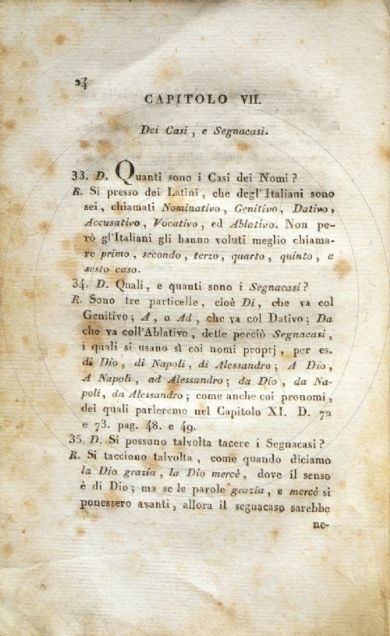 24
CAPITOLO VII.
Dei Casi, e Segnacasi.
33. D. Quanti sono i Casi dei Nomi?
R. Sì presso dei Latini, che degl'Italiani sono
sei, chiamati Nominativo, Genitivo, Dativo,
Accusativo, Vocativo, ed Ablativo. Non pe-
rò gl'Italiani gli hanno voluti meglio chiama-
re primo, secondo, terzo, quarto, quinto, e
sesto caso.
34. D. Quali, e quanti sono i Segnacasi?
R. Sono tre particelle, cioè Di, che va col
Genitivo; A, o Ad, che va col Dativo; Da
che va coll'Ablativo, dette perciò Segnacasi,
i quali si usano sì coi nomi proprj, per es.
di Dio, di Napoli, di Alessandro; A Dio,
A Napoli, ad Alessandro; da Dio, da Na-
poli, da Alessandro; come anche coi pronomi,
dei quali parleremo nel Capitolo XI. D. 72
e 73. pag. 48. e 49.
35. D. Si possono talvolta tacere i Segnacasi?
R. Si tacciono talvolta, come quando diciamo
la Dio grazia, la Dio mercè, dove il senso
è di Dio; ma se le parole grazia, e mercè si
ponessero avanti, allora il segnacaso sarebbe
ne-